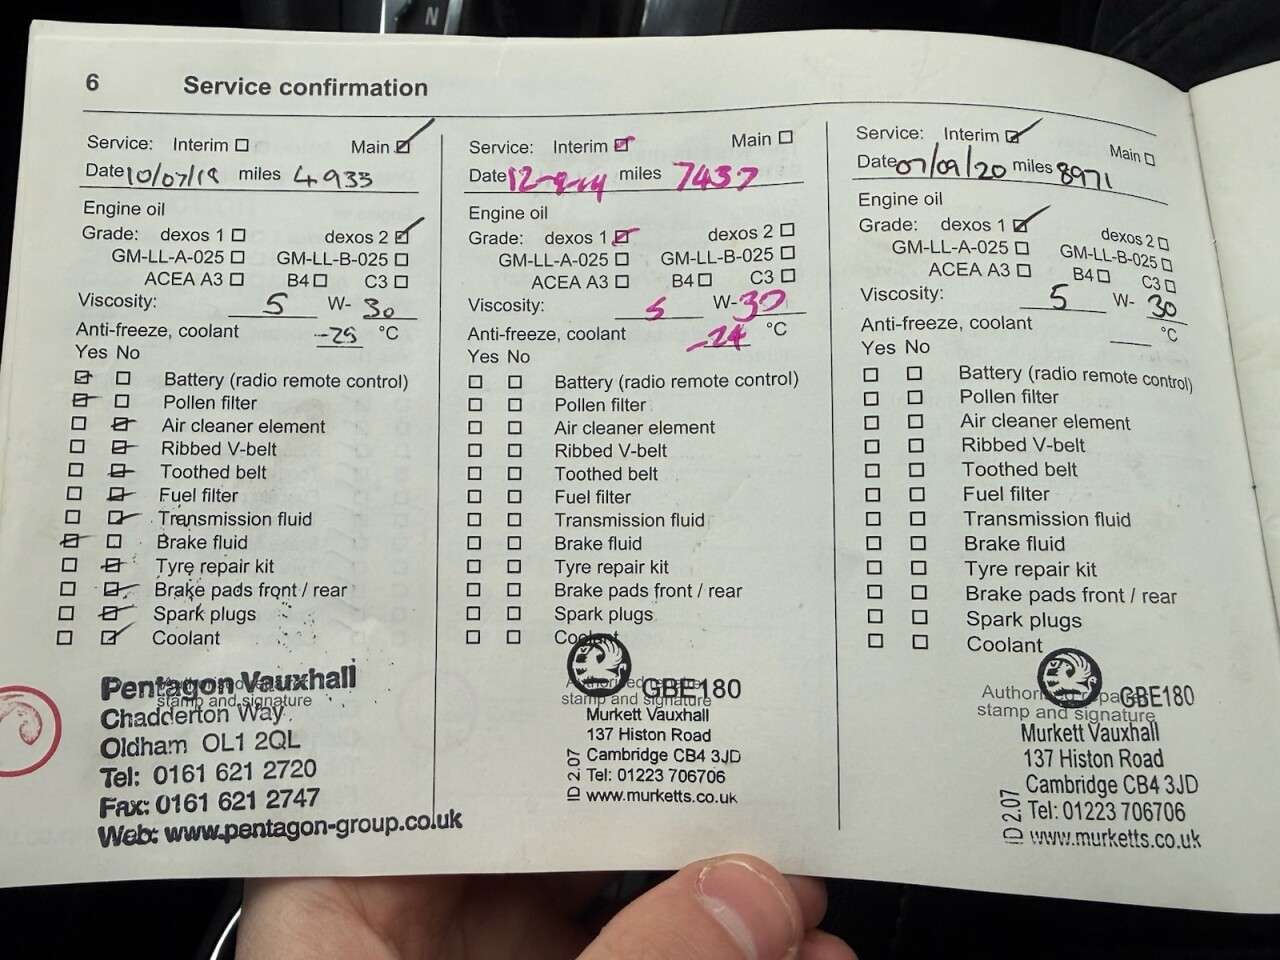 N
6 Service confirmation
Service: Interim Main
Date 10/07/18 miles 4933
Engine oil
Grade: dexos 1 dexos 2
GM-LL-A-025 GM-LL-B-025
ACEA A3 B4 C3
Viscosity: 5 W- 30
Anti-freeze, coolant -25 °C
Yes No
Battery (radio remote control)
Pollen filter
Air cleaner element
Ribbed V-belt
Toothed belt
Fuel filter
Transmission fluid
Brake fluid
Tyre repair kit
Brake pads front / rear
Spark plugs
Coolant
stamp and signature
Pentagon Vauxhall
Chadderton Way
Oldham OL1 2QL
Tel: 0161 621 2720
Fax: 0161 621 2747
Web: www.pentagon-group.co.uk
Service: Interim Main
Date miles 7437
Engine oil
Grade: dexos 1 dexos 2
GM-LL-A-025 GM-LL-B-025
ACEA A3 B4 C3
Viscosity: 5 W- 30
Anti-freeze, coolant -24 °C
Yes No
Battery (radio remote control)
Pollen filter
Air cleaner element
Ribbed V-belt
Toothed belt
Fuel filter
Transmission fluid
Brake fluid
Tyre repair kit
Brake pads front / rear
Spark plugs
Coolant
stamp and signature
GBE180
Murkett Vauxhall
137 Histon Road
Cambridge CB4 3JD
Tel: 01223 706706
www.murketts.co.uk
ID 2.07
Service: Interim Main
Date 07/09/20 miles 8971
Engine oil
Grade: dexos 1 dexos 2
GM-LL-A-025 GM-LL-B-025
ACEA A3 B4 C3
Viscosity: 5 W- 30
Anti-freeze, coolant °C
Yes No
Battery (radio remote control)
Pollen filter
Air cleaner element
Ribbed V-belt
Toothed belt
Fuel filter
Transmission fluid
Brake fluid
Tyre repair kit
Brake pads front / rear
Spark plugs
Coolant
stamp and signature
GBE180
Murkett Vauxhall
137 Histon Road
Cambridge CB4 3JD
Tel: 01223 706706
www.murketts.co.uk
ID 2.07